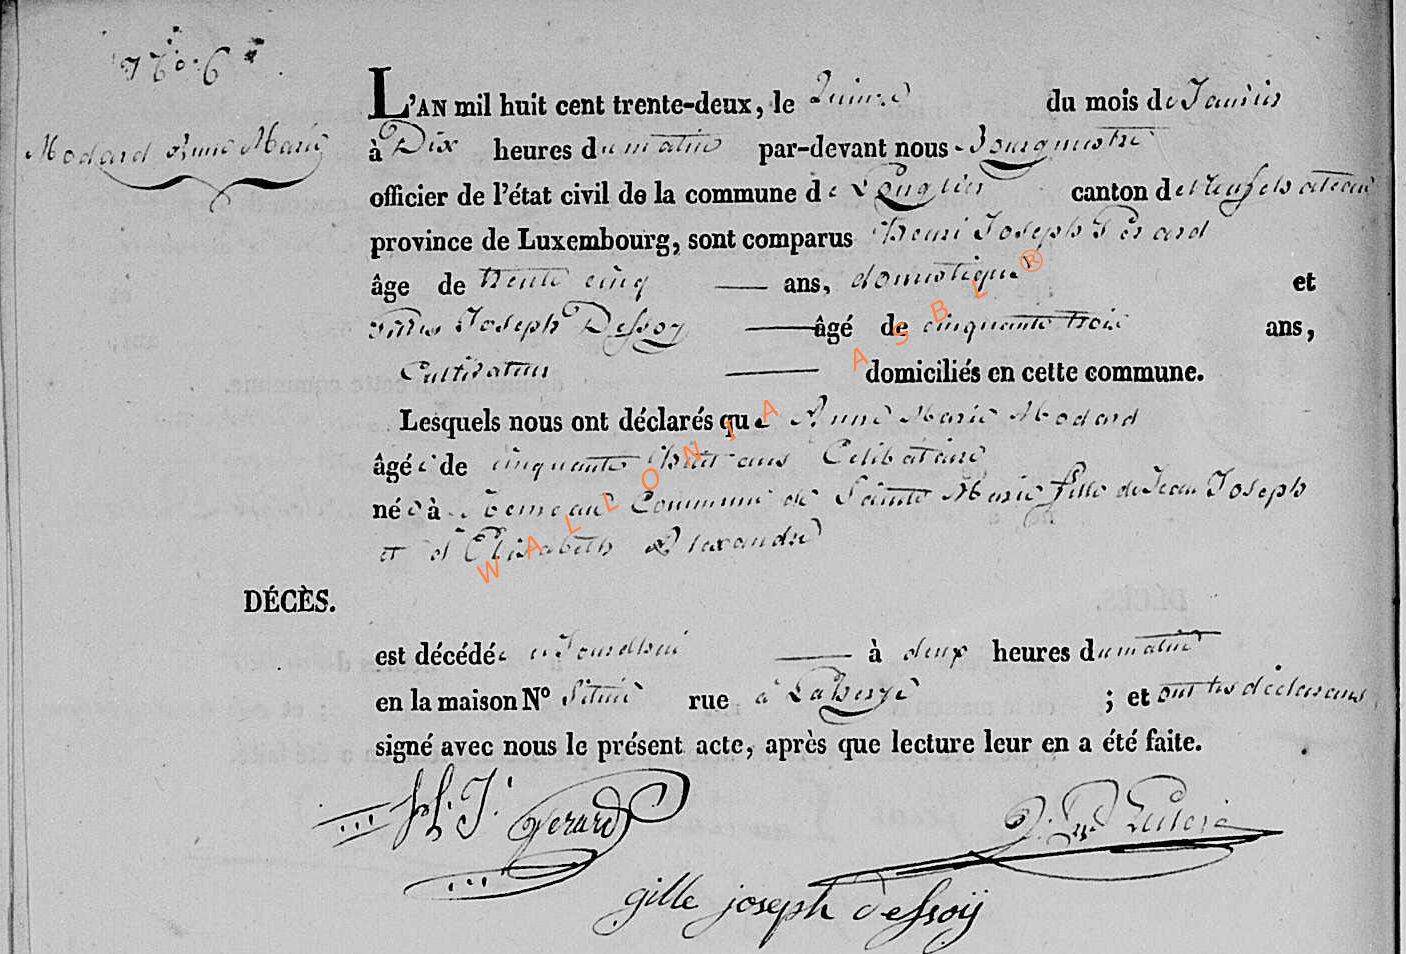 N° 6
Modard Anne Marie
L'AN mil huit cent trente-deux, le Quinze du mois de Janvier
à Dix heures du matin par-devant nous Bourgmestre
officier de l'état civil de la commune de Longlier canton de Neufchateau
province de Luxembourg, sont comparus Henri Joseph Gérard
âge de trente cinq ans, domestique et
Gilles Joseph Dessoy âgé de cinquante trois ans,
Cultivateur domiciliés en cette commune.
Lesquels nous ont déclarés que Anne Marie Modard
âgée de cinquante huit ans Celibataire
née à commune de Sainte Marie fille de Jean Joseph
et d'Elisabeth Alexandre
DÉCÈS.
est décédée aujourdhui à deux heures du matin
en la maison N° située rue à Laherie ; et ont les déclarans
signé avec nous le présent acte, après que lecture leur en a été faite.
H. J. Gerard
gille joseph dessoÿ
WALLONIA ASBL ®